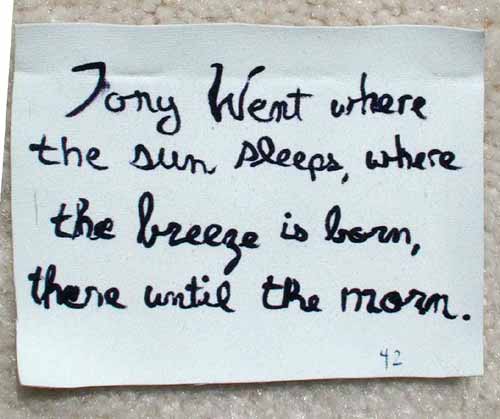 Tony Went where
the sun sleeps, where
the breeze is born,
there until the morn.
42